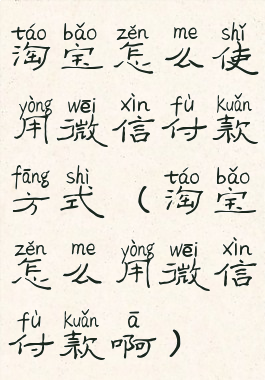 táo bǎo zěn me shǐ
淘宝怎么使
yòng wēi xìn fù kuǎn
用微信付款
fāng shì táo bǎo
方式（淘宝
zěn me yòng wēi xìn
怎么用微信
fù kuǎn ā
付款啊）